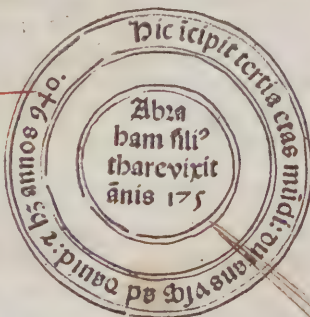 Hic icipit tertia etas mūdi: durans vsq̄ ad dauid: ⁊ hꝫ annos 940.
Abra
ham fili⁹
thare vixit
ānis 175